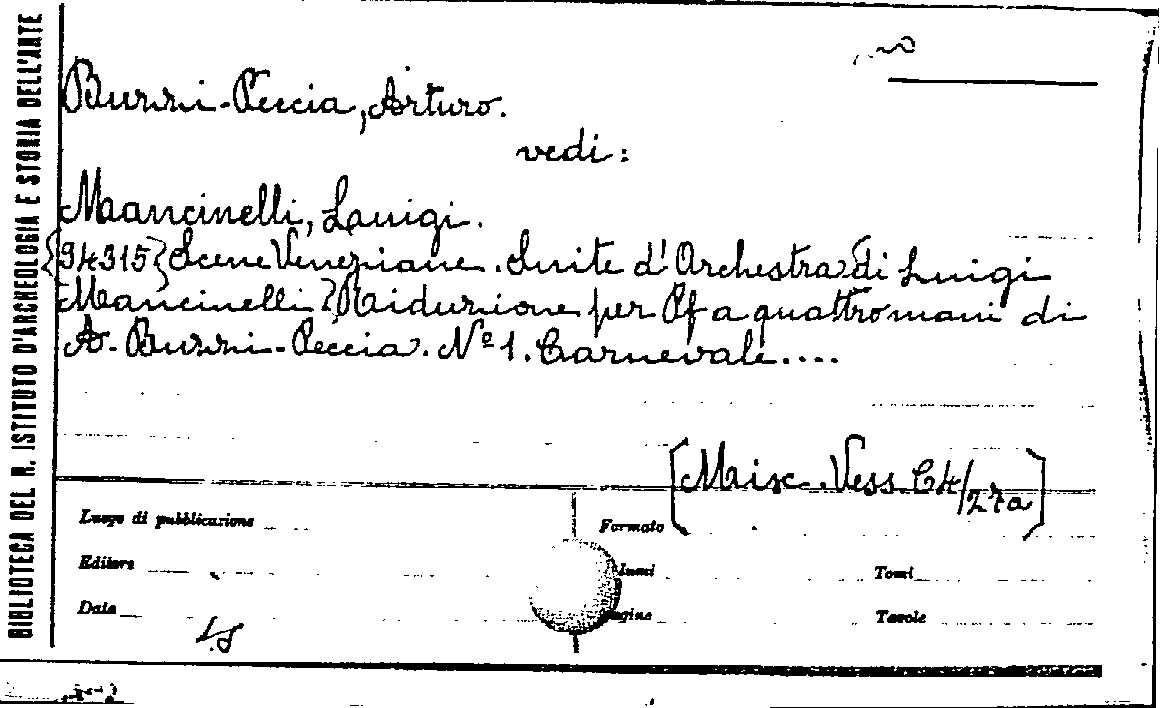 BIBLIOTECA DEL R. ISTITUTO D'ARCHEOLOGIA E STORIA DELL'ARTE
Buzzi-Peccia, Arturo.
vedi:
Mancinelli, Luigi.
{94315} Scene Veneziane. Suite d'Orchestra di Luigi
Mancinelli } Riduzione per Pf a quattro mani di
A. Buzzi-Peccia. Nº 1. Carnevale....
[Misc. Vess. C4/27a]
Luogo di pubblicazione
Formato
Editore
Tomi
Data
Tavole